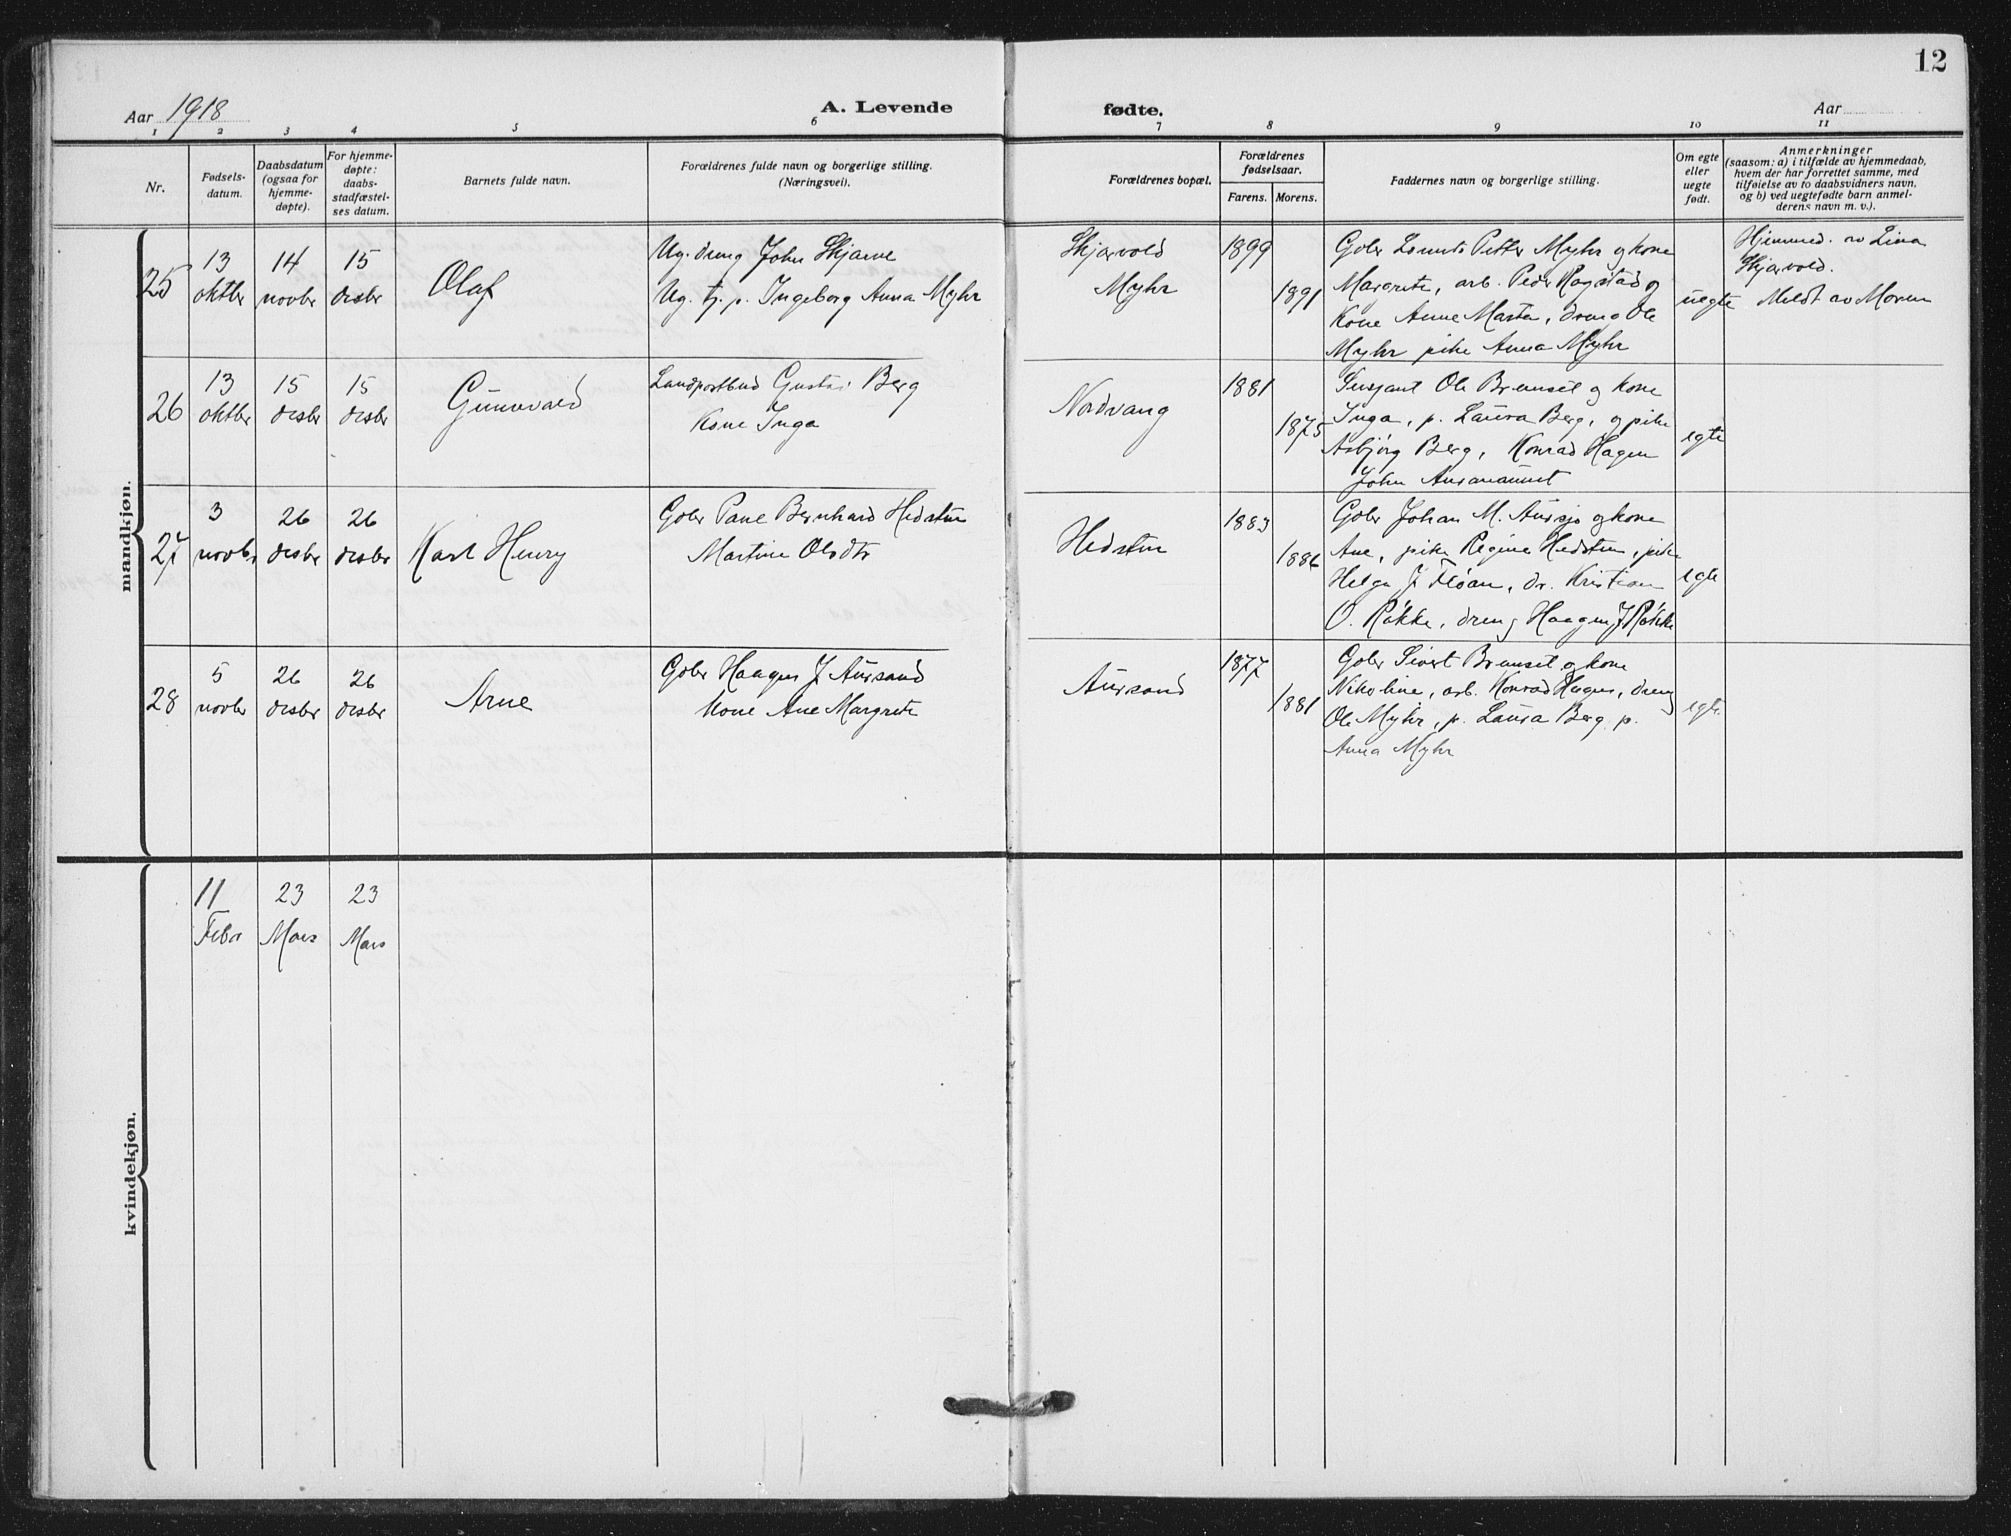 12
Aar 1918
A. Levende
fødte.
Aar
1 2 3 4 5 6 7 8 9 10 11
Nr.
Fødsels-
datum.
Daabsdatum
(ogsaa for
hjemme-
døpte).
For hjemme-
døpte:
daabs-
stadfæstel-
ses datum.
Barnets fulde navn.
Forældrenes fulde navn og borgerlige stilling.
(Næringsvei).
Forældrenes bopæl.
Forældrenes
fødselsaar.
Farens. Morens.
Faddernes navn og borgerlige stilling.
Om egte
eller
uegte
født.
Anmerkninger
(saasom: a) i tilfælde av hjemmedaab,
hvem der har forrettet samme, med
tilføielse av to daabsvidners navn,
og b) ved uegtefødte barn anmel-
derens navn m. v.).
mandkjøn.
25
13
oktbr
14
novbr
15
desbr
Olaf
Ug. dreng John Skjærve
Ug. tj. p. Ingeborg Anna Myhr
Skjærvold
Myhr
1899
1891
Gbr Petter Myhr og kone
Margrete, arb. Peder Rogstad og
Kone Anne Marta, dreng Ole
Myhr pike Anna Myhr
uegte
Hjemmed. av Lina
Skjærvold.
Meldt av Moren
26
13
oktbr
15
desbr
15
desbr
Gunnvald
Landpostbud Gustav Berg
Kone Inga
Nordvang
1881
1875
Sersjant Ole Bremset og kone
Inga, p. Laura Berg, og pike
Asbjørg Berg, Konrad Hagen
John
egte
27
3
novbr
26
desbr
26
desbr
Karl Henry
Gbr Bernhard Hedsten
Martine Olsdtr
Hedsten
1883
1886
Gbr Johan M. Aursjo og kone
Ane, pike Regine Hedsten, pike
Helga J Fløan, dr. Kristian
O. Røkke, dreng Haagen J Røkke
egte
28
5
novbr
26
desbr
26
desbr
Arne
Gbr Haagen J Aursand
Kone Ane Margrete
Aursand
1877
1881
Gbr Sivert Bremset og kone
Nikoline, arb. Konrad Hagen, dreng
Ole Myhr, p. Laura Berg p.
Anna Myhr
egte
kvindekjøn.
11
Febr
23
Mars
23
Mars